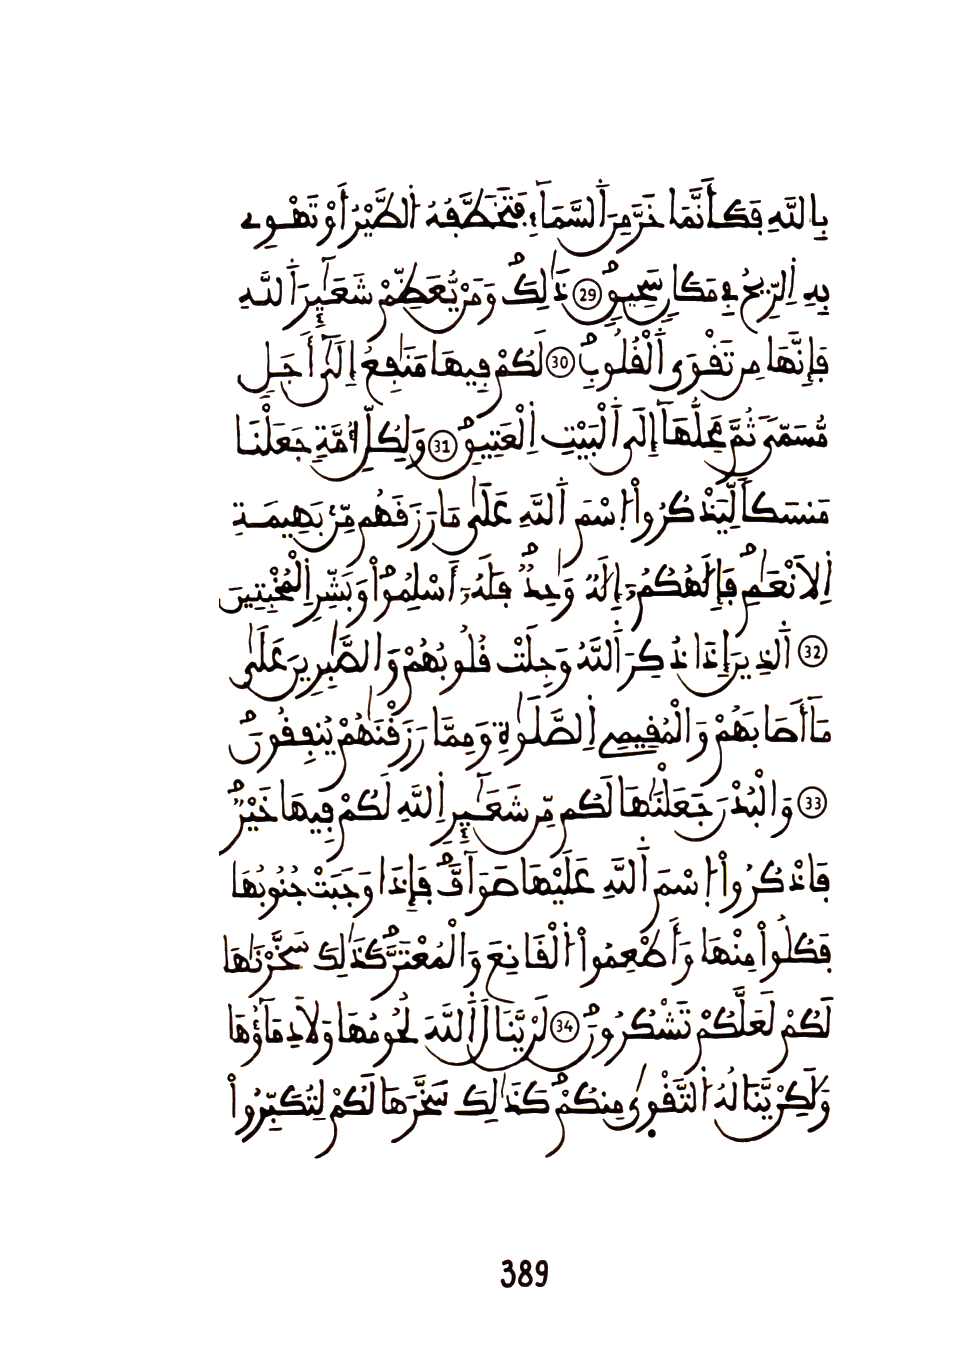 بِاللَّهِ فَكَأَنَّمَا خَرَّ مِنَ اَ۬لسَّمَآءِ فَتَخَطَّفُهُ اُ۬لطَّيْرُ أَوْ تَهْوِے
بِهِ اِ۬لرِّيحُ فِے مَكَانٖ سَحِيقٖۖ 29 ذَٰلِكَۖ وَمَنْ يُّعَظِّمْ شَعَٰٓئِرَ اَ۬للَّهِ
فَإِنَّهَا مِن تَقْوَى اَ۬لْقُلُوبِۖ 30 لَكُمْ فِيهَا مَنَٰفِعُ إِلَىٰٓ أَجَلٖ
مُّسَمّىٗ ثُمَّ مَحِلُّهَآ إِلَى اَ۬لْبَيْتِ اِ۬لْعَتِيقِۖ 31 وَلِكُلِّ أُمَّةٖ جَعَلْنَا
مَنسَكاٗ لِّيَذْكُرُواْ اُ۪سْمَ اَ۬للَّهِ عَلَىٰ مَا رَزَقَهُم مِّنۢ بَهِيمَةِ
اِ۬لَانْعَٰمِۖ فَإِلَٰهُكُمُۥٓ إِلَٰهٞ وَٰحِدٞۖ فَلَهُۥٓ أَسْلِمُواْۖ وَبَشِّرِ اِ۬لْمُخْبِتِينَ
32 اَ۬لذِينَ إِذَا ذُكِرَ اَ۬للَّهُ وَجِلَتْ قُلُوبُهُمْ وَالصَّٰبِرِينَ عَلَىٰ
مَآ أَصَابَهُمْ وَالْمُقِيمِے اِ۬لصَّلَوٰةِ وَمِمَّا رَزَقْنَٰهُمْ يُنفِقُونَۖ
33 وَالْبُدْنَ جَعَلْنَٰهَا لَكُم مِّن شَعَٰٓئِرِ اِ۬للَّهِ لَكُمْ فِيهَا خَيْرٞۖ
فَاذْكُرُواْ اُ۪سْمَ اَ۬للَّهِ عَلَيْهَا صَوَآفَّۖ فَإِذَا وَجَبَتْ جُنُوبُهَا
فَكُلُواْ مِنْهَا وَأَطْعِمُواْ اُ۬لْقَانِعَ وَالْمُعْتَرَّۖ كَذَٰلِكَ سَخَّرْنَٰهَا
لَكُمْ لَعَلَّكُمْ تَشْكُرُونَۖ 34 لَنْ يَّنَالَ اَ۬للَّهَ لُحُومُهَا وَلَا دِمَآؤُهَا
وَلَٰكِنْ يَّنَالُهُ اُ۬لتَّقْوٜىٰ مِنكُمْۖ كَذَٰلِكَ سَخَّرَهَا لَكُمْ لِتُكَبِّرُواْ
389